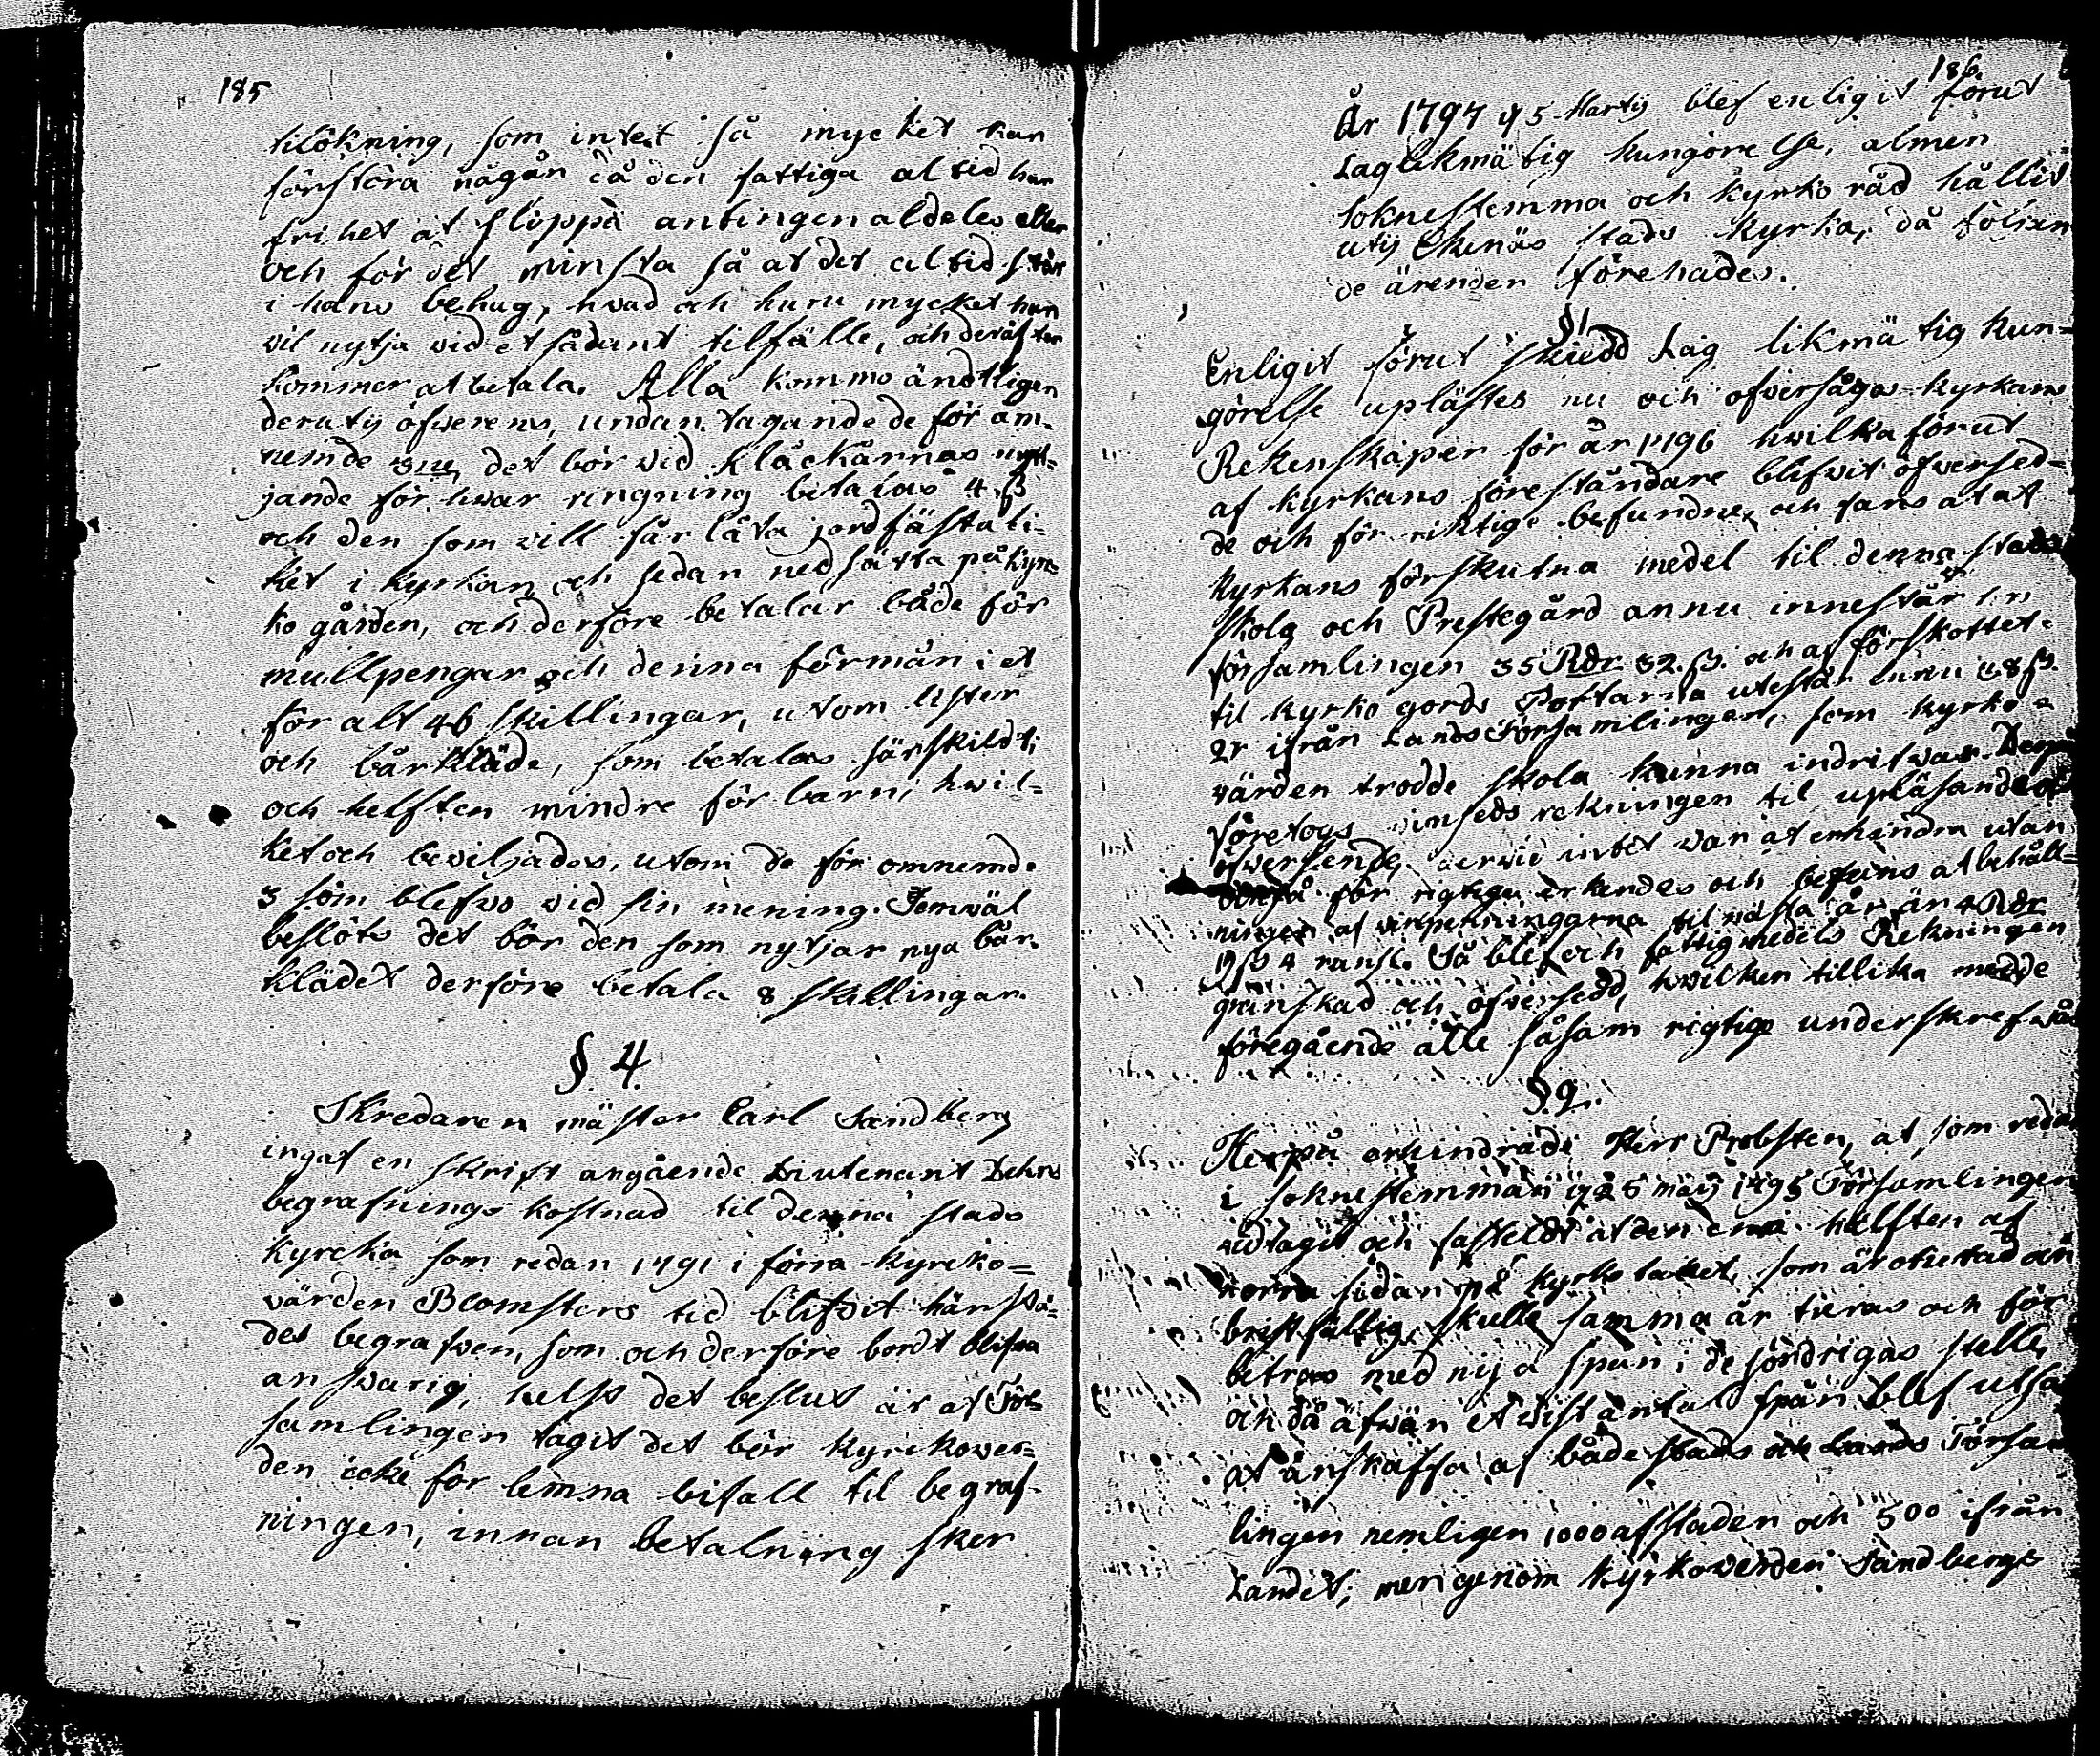 185
tilökning, som intet så mycket kan
förstöra någån då den fattiga altid har
frihet at slippa antingen aldeles eller
och för det minsta så at det altid står
i hans behag, hvad och huru mycket han
vil nytja vid et sådant tilfälle, och deräfter
kommer at betala. Alla kommo ändtligen
derutij öfwerens, undantagande de för om-
nemde 3ne, det bör vid klåckårnas nytt-
jande för hwar ringning betalas 4 ß
och den som vill får låta jordfästa li-
ket i kyrkan och sedan nedsätta på kyr-
ko gården, och derföre betalar både för
mullpengar och denna förmån i et
för alt 46 skillingar, utom lister
och bårkläde, som betalas särskildt;
och helften mindre för barn, hwil-
ket och beviljades, utom de för omnemde
3 som blefwo vid sin mening. Jemväl
beslöts det bör den som nytjar nya bår-
klädet derföre betala 8 skillingar.
§ 4.
Skredaren mäster Carl Sandberg
ingaf en skrift angående Liutenant Dehns
begrafnings kostnad til denna stads
kyrcka som redan 1791 i förra kyrcko-
värden Blomsters tid blifvit härstä-
des begrafwen, som och derföre bordt blifwa
answarig, helst det beslut är af För-
samlingen tagit det bör kyrckover-
den icke för lemna bifall til begraf-
ningen, innan betalning sker
186.
År 1797 d 5 Martij blef enligit förut
Laglikmätig kungörelse, almen
Soknestemma och kyrko råd hållit
utij Ekenäs stads kyrka, då följan
de ärender förehades.
§1
Enligit förut skiedd Lag likmätig kun-
görelse uplästes nu och öfversågos kyrkans
Rekenskaper för år 1796 hwilka förut
af kyrkans föreståndare blifvit öfversed-
de och för riktige befundne, och fans at at
kyrkans förskutna medel til denna stads
skola och Prestegård annu innestår hos
församlingen 35 Rdr 32 ß. och af förskottet
til kyrko gords Portarna utestår ennu 28 ß.
2r ifrån Lands Församlingen, som kyrko-
värden trodde skola kunna indrifwas.
företogs vinseds rekningen til upläsande och
öfverseende, intet var at erhindra utan
för rigtiga erkendes och befans at behåll-
ningen af vinpenningarna til nästa år är 4 Rdr
17 ß 4 runst. Så blef och fattigmedels Rekningen
granskad och öfversedd, hwilken tillika medde
föregående alle såsom rigtige underskrefwos
§.2.
Herpå erhindrade Herr Probsten, at som redan
i soknestemman d 25 maij 1795 Församlingen
vidtagit och fasteldt at den ena hälften af
norra sidan på kyrko taket, som är otietad och
bristfällig, skulle samma år tieras och för
betras med nija spån i de söndrigas stelle,
och då äfwän et vist antal spån blef utsa
at anskaffa af både stads och Lands Försam
lingen nemligen 1000 af staden och 500 ifrån
Landet; men genom kyrkoverden Sandbergs